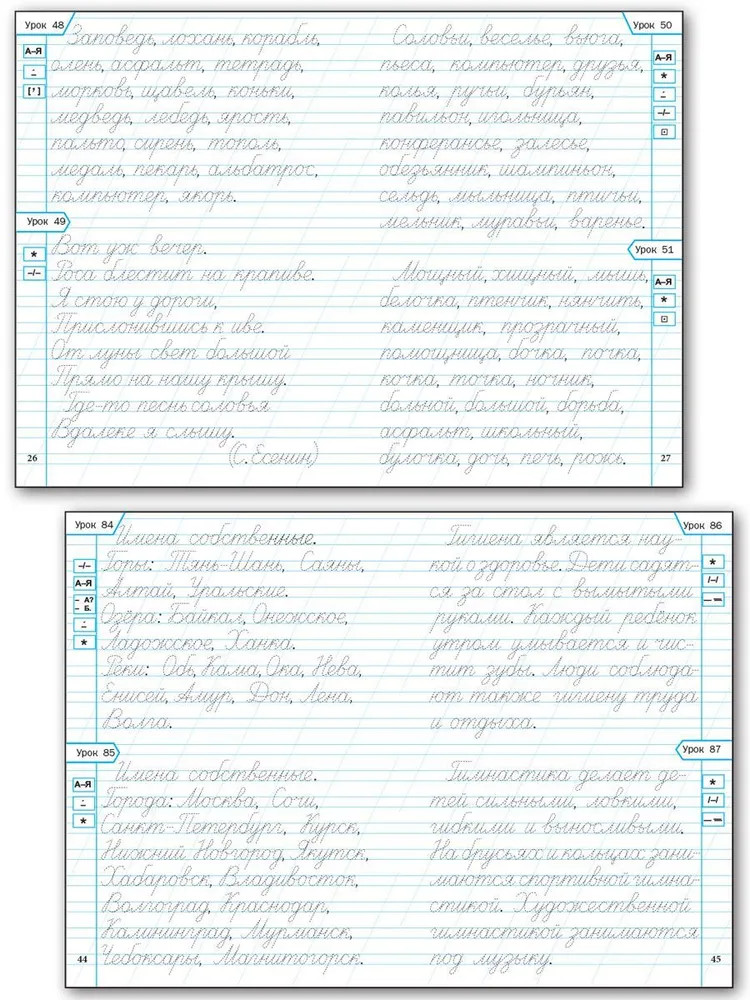 Урок 48
А–Я
[']
Заповедь, лохань, корабль,
олень, асфальт, тетрадь,
морковь, щавель, коньки,
медведь, лебедь, ярость,
пальто, сирень, тополь,
медаль, пекарь, альбатрос,
компьютер, якорь.
Урок 49
*
–/–
Вот уж вечер.
Роса блестит на крапиве.
Я стою у дороги,
Прислонившись к иве.
От луны свет большой
Прямо на нашу крышу.
Где-то песнь соловья
Вдалеке я слышу.
(С. Есенин)
26
Урок 50
А–Я
*
–/–
Соловьи, веселье, вьюга,
пьеса, компьютер, друзья,
колья, ручьи, бурьян,
павильон, игольница,
конферансье, залесье,
обезьянник, шампиньон,
сельдь, мыльница, птичьи,
мельник, муравьи, варенье.
Урок 51
А–Я
*
Мощный, хищный, мышь,
белочка, птенчик, нянчить,
каменщик, прозрачный,
помощница, бочка, почка,
кочка, точка, ночник,
больной, большой, борьба,
асфальт, школьный,
булочка, дочь, печь, рожь.
27
Урок 84
–/–
А–Я
– А?
– Б.
*
Имена собственные.
Горы: Тянь-Шань, Саяны,
Алтай, Уральские.
Озёра: Байкал, Онежское,
Ладожское, Ханка.
Реки: Обь, Кама, Ока, Нева,
Енисей, Амур, Дон, Лена,
Волга.
Урок 85
А–Я
*
Имена собственные.
Города: Москва, Сочи,
Санкт-Петербург, Курск,
Нижний Новгород, Якутск,
Хабаровск, Владивосток,
Волгоград, Краснодар,
Калининград, Мурманск,
Чебоксары, Магнитогорск.
44
Урок 86
*
/–/
Гигиена является нау-
кой о здоровье. Дети садят-
ся за стол с вымытыми
руками. Каждый ребёнок
утром умывается и чис-
тит зубы. Люди соблюда-
ют также гигиену труда
и отдыха.
Урок 87
*
/–/
Гимнастика делает де-
тей сильными, ловкими,
гибкими и выносливыми.
На брусьях и кольцах зани-
маются спортивной гимна-
стикой. Художественной
гимнастикой занимаются
под музыку.
45